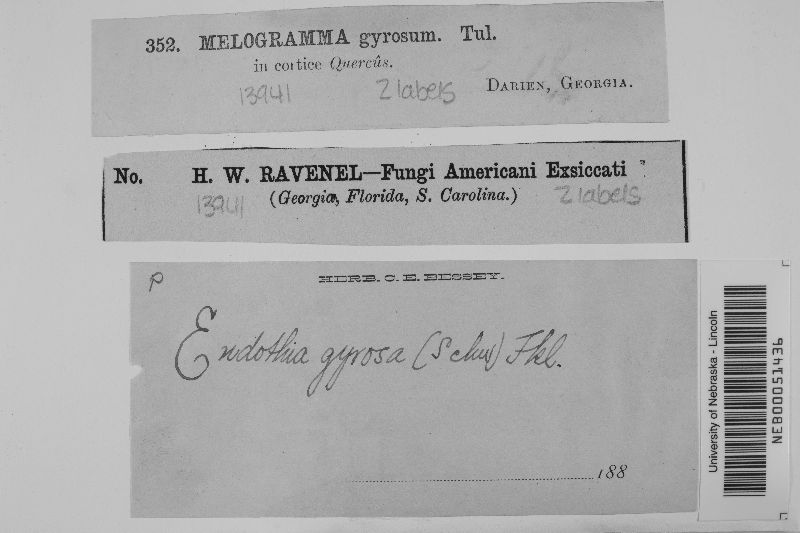 352. MELOGRAMMA gyrosum. Tul.
in cortice Quercûs.
13941 2 labels DARIEN, GEORGIA.
No. H. W. RAVENEL—Fungi Americani Exsiccati
(Georgia, Florida, S. Carolina.)
13941 2 labels
P HERB. C. E. BESSEY.
Endothia gyrosa (Schw) Fkl.
188
University of Nebraska - Lincoln
NEB00051436